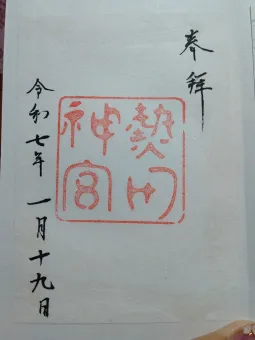 奉拝
熱田
神宮
令和七年一月十九日